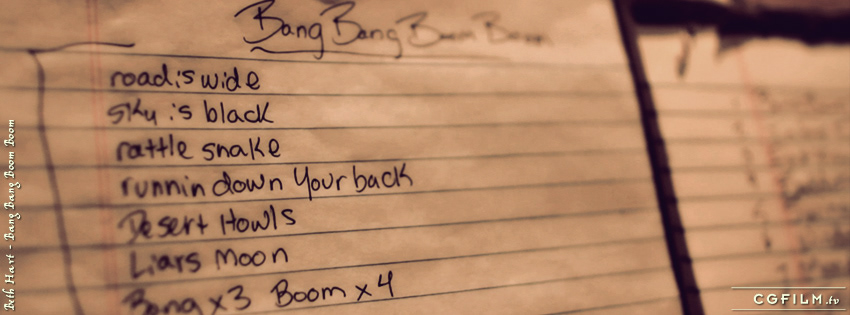 Bang Bang Boom Boom
road is wide
sky is black
rattle snake
runnin down your back
Desert Howls
Liars Moon
Bang x3 Boom x4
Beth Hart - Bang Bang Boom Boom
CGFILM.tv